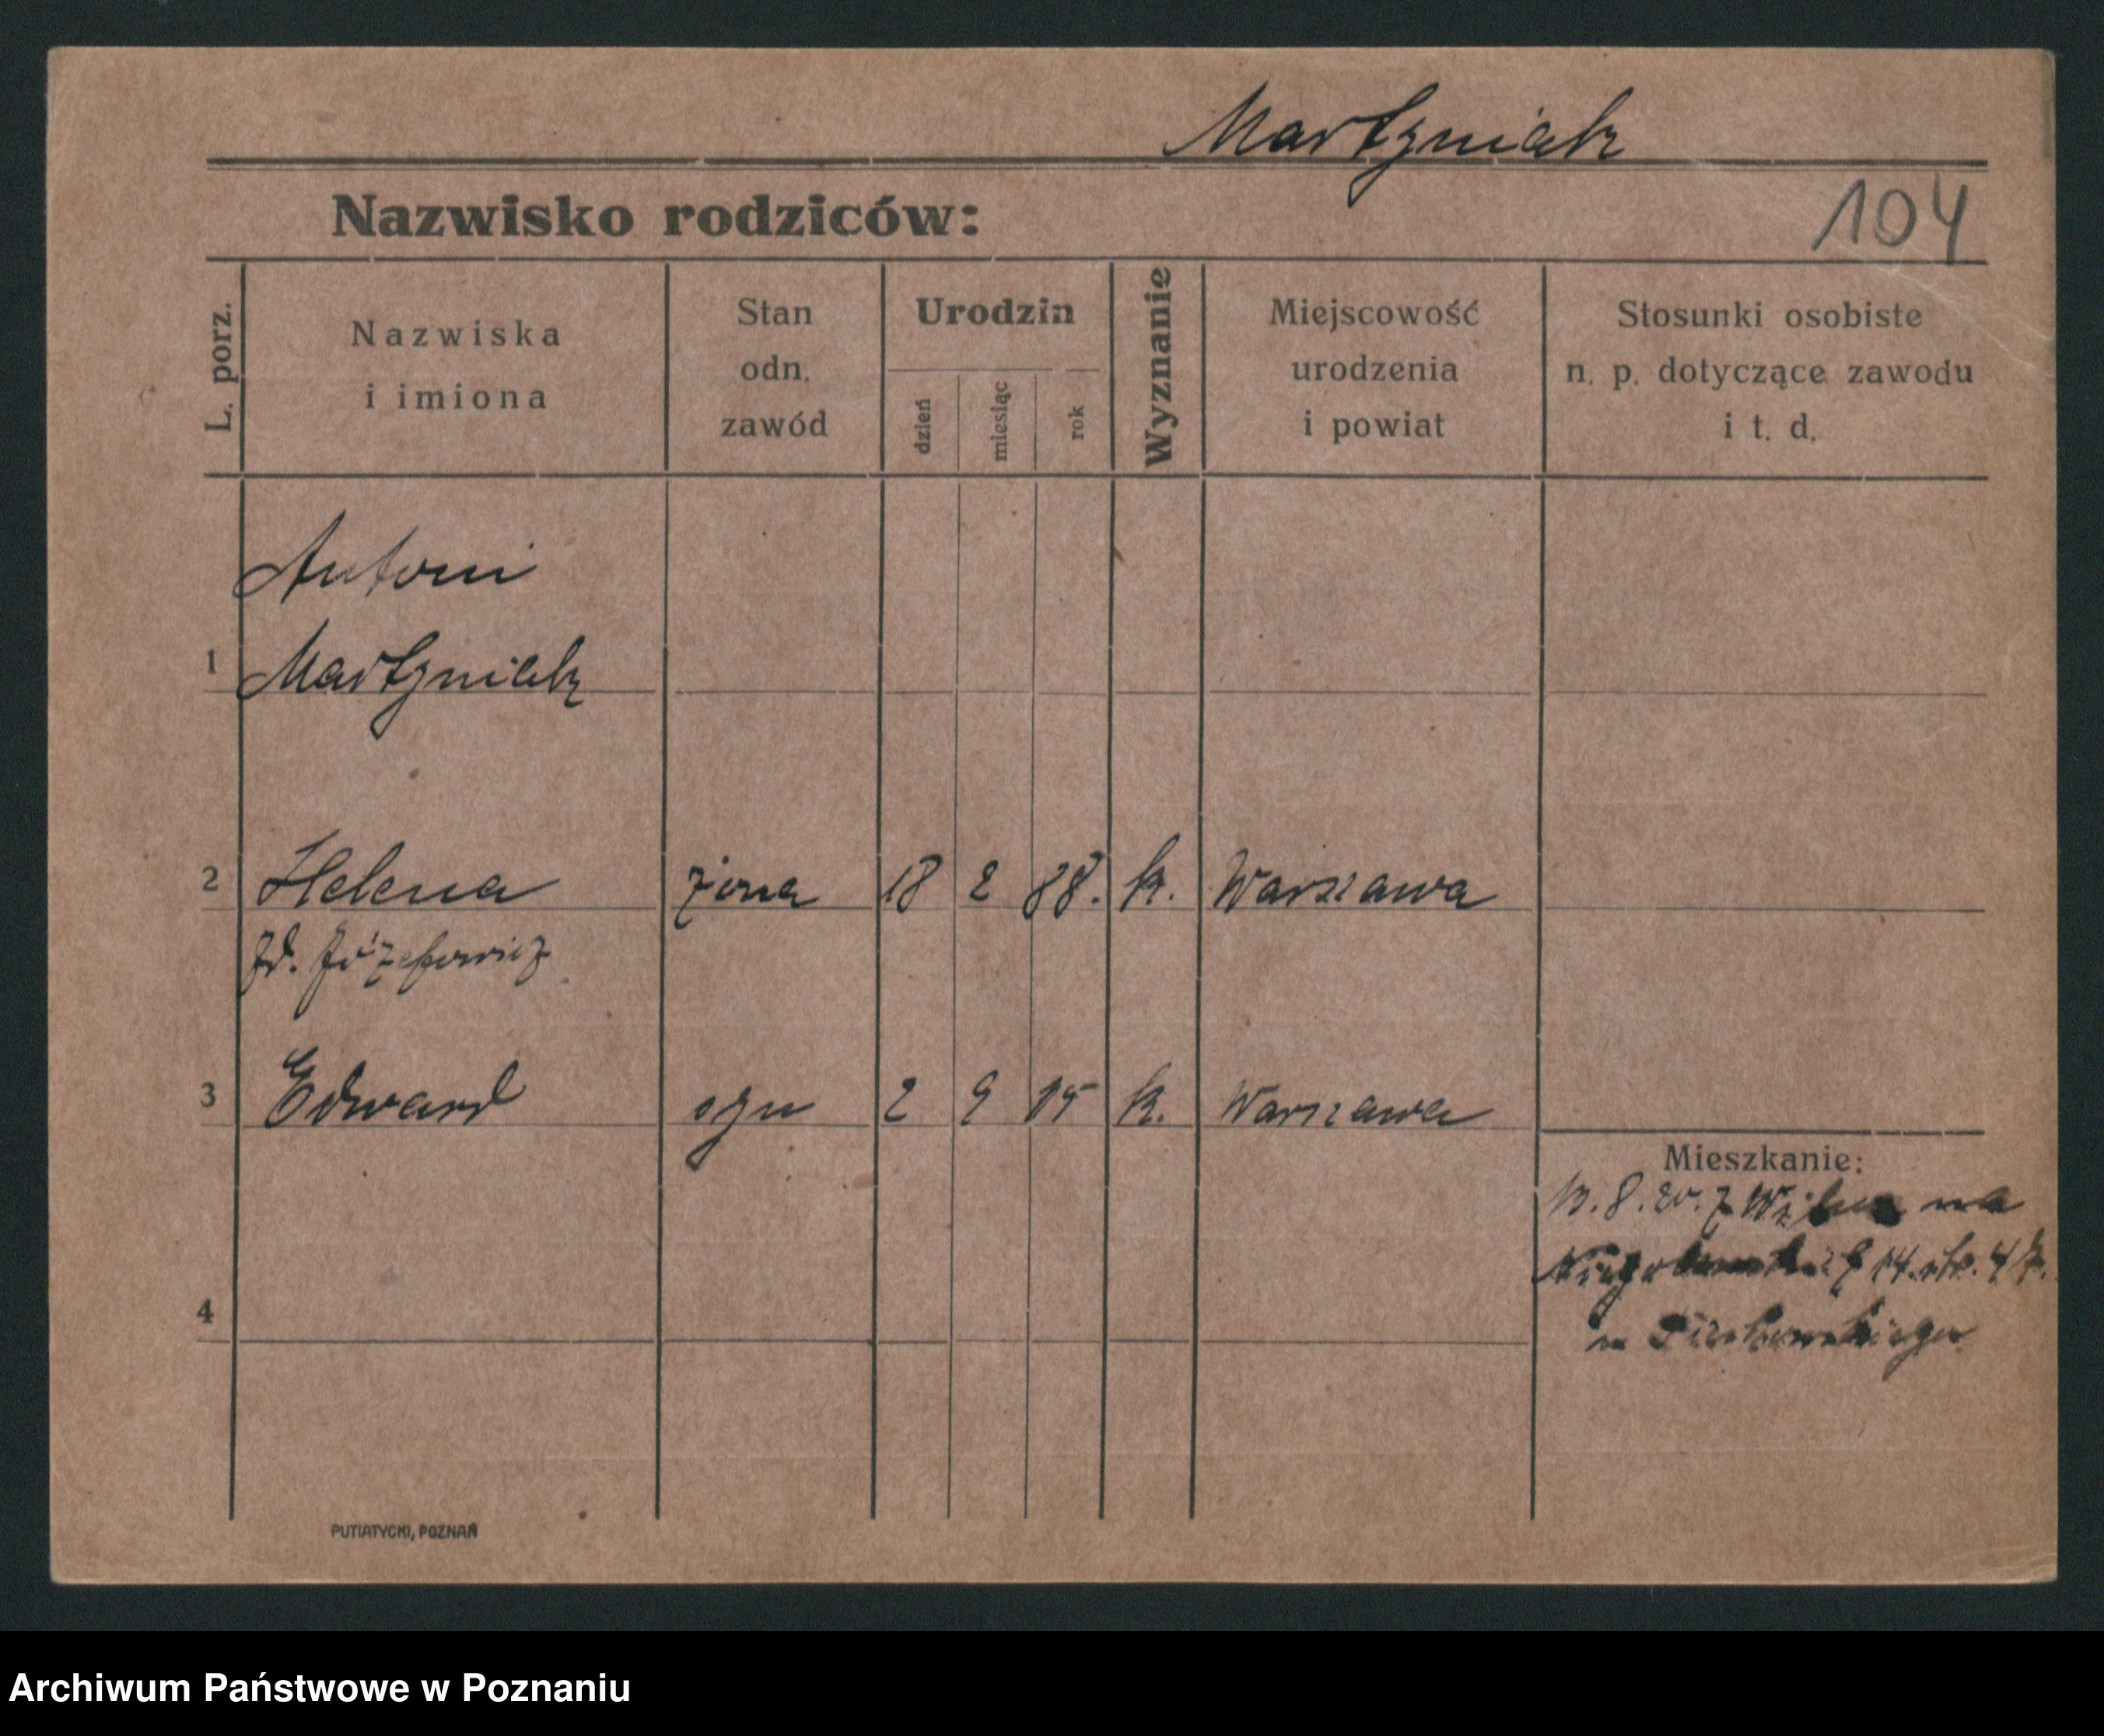 Martyniak
Nazwisko rodziców:
104
L. porz.
Nazwiska
i imiona
Stan
odn.
zawód
Urodzin
dzień
miesiąc
rok
Wyznanie
Miejscowość
urodzenia
i powiat
Stosunki osobiste
n. p. dotyczące zawodu
i t. d.
Antoni
1 Martyniak
2 Helena żona 18 2 88. k. Warszawa
zd. Józefowicz
3 Edward syn 2 9 15 k. Warszawa
Mieszkanie:
13. 8. 20. z na
14. 4
u
4
PUTIATYCKI, POZNAŃ
Archiwum Państwowe w Poznaniu